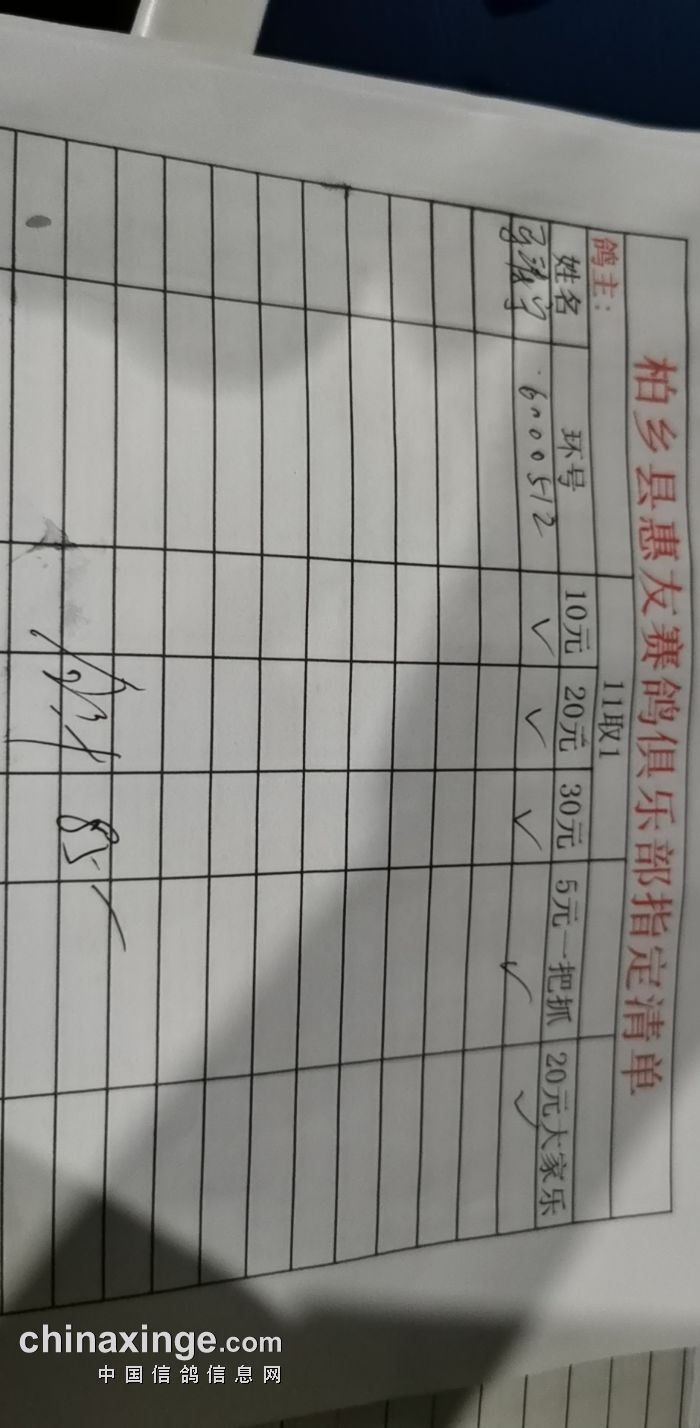 柏乡县惠友赛鸽俱乐部指定清单
11取1
鸽主：
姓名 环号 10元 20元 30元 5元一把抓 20元大家乐
6000512 ✓ ✓ ✓ ✓ ✓
85
chinaxinge.com
中国信鸽信息网